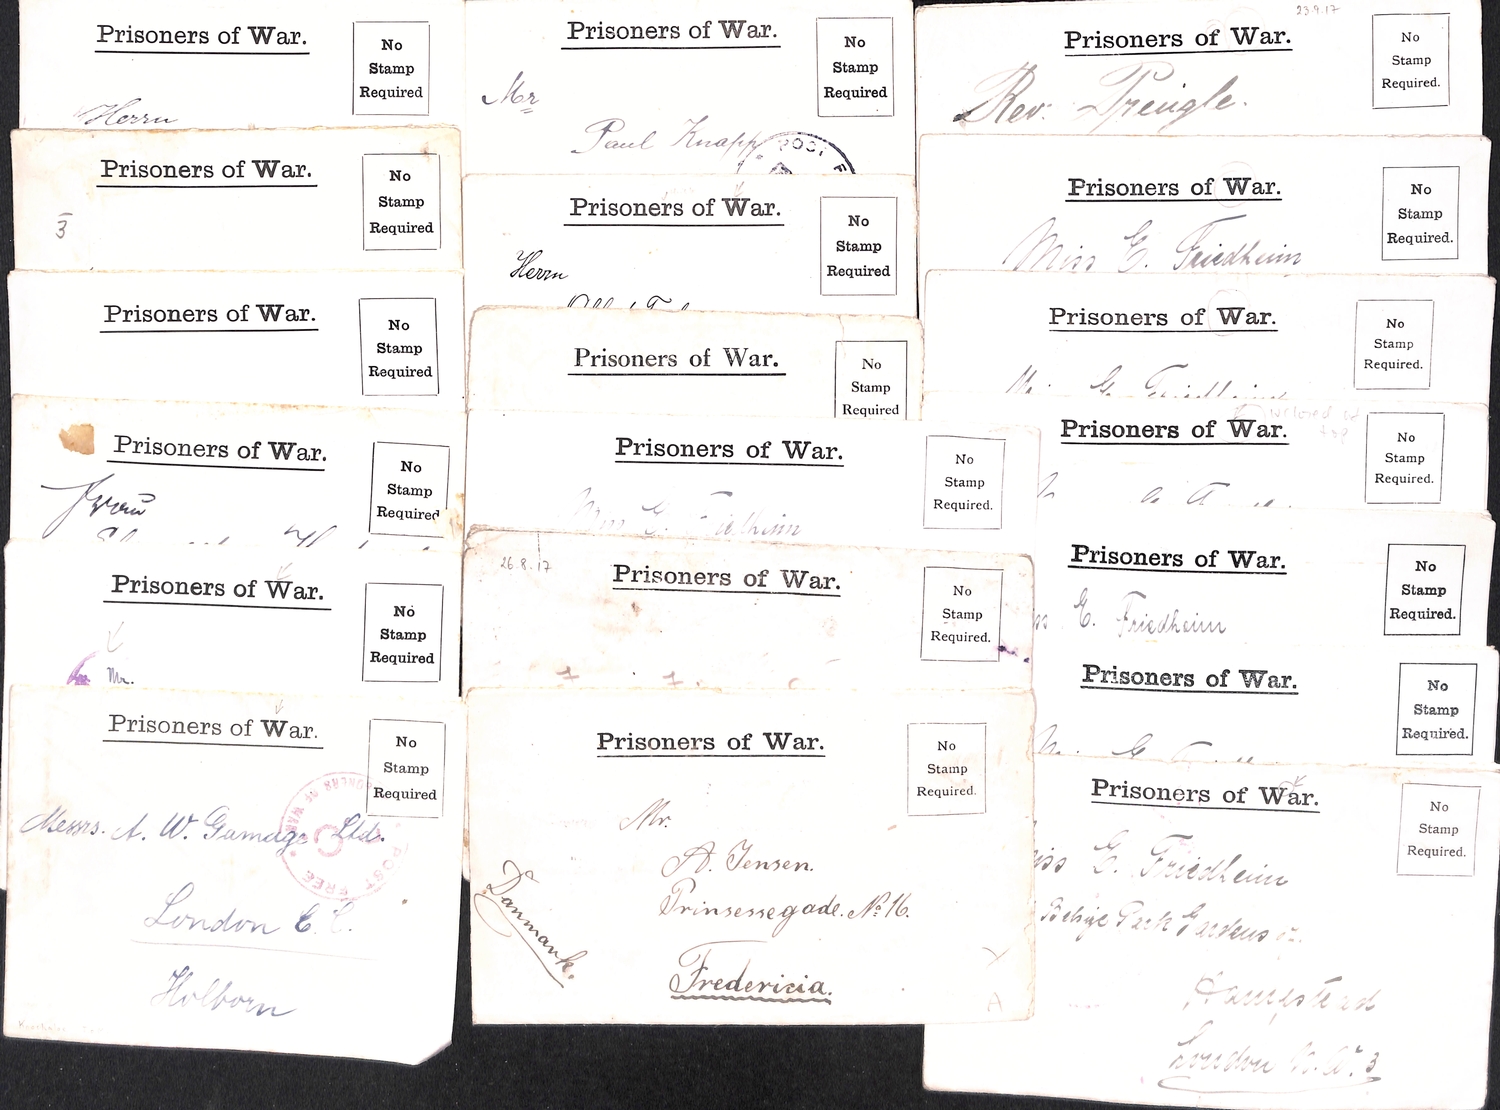 Prisoners of War.
No
Stamp
Required
Herrn
Prisoners of War.
No
Stamp
Required
3
Prisoners of War.
No
Stamp
Required
Prisoners of War.
No
Stamp
Required
Frau
Prisoners of War.
No
Stamp
Required
Mr.
Prisoners of War.
No
Stamp
Required
POST FREE
PRISONERS OF WAR
Messrs. A. W. Gamage Ltd.
London E.C.
Holborn
Prisoners of War.
No
Stamp
Required
Mr
Paul Knapp
POST F
Prisoners of War.
No
Stamp
Required
Herrn
Prisoners of War.
No
Stamp
Required
Prisoners of War.
No
Stamp
Required.
Miss E. Friedheim
26.8.17
Prisoners of War.
No
Stamp
Required.
Prisoners of War.
No
Stamp
Required.
Mr.
A. Jensen.
Prinsessegade. No 16.
Fredericia.
Danmark.
23.9.17
Prisoners of War.
No
Stamp
Required.
Rev. Pringle.
Prisoners of War.
No
Stamp
Required.
Miss E. Friedheim
Prisoners of War.
No
Stamp
Required.
Prisoners of War.
No
Stamp
Required.
Prisoners of War.
No
Stamp
Required.
E. Friedheim
Prisoners of War.
No
Stamp
Required.
Prisoners of War.
No
Stamp
Required.
iss E. Friedheim
Park Gardens
Hampstead
London N.W. 3